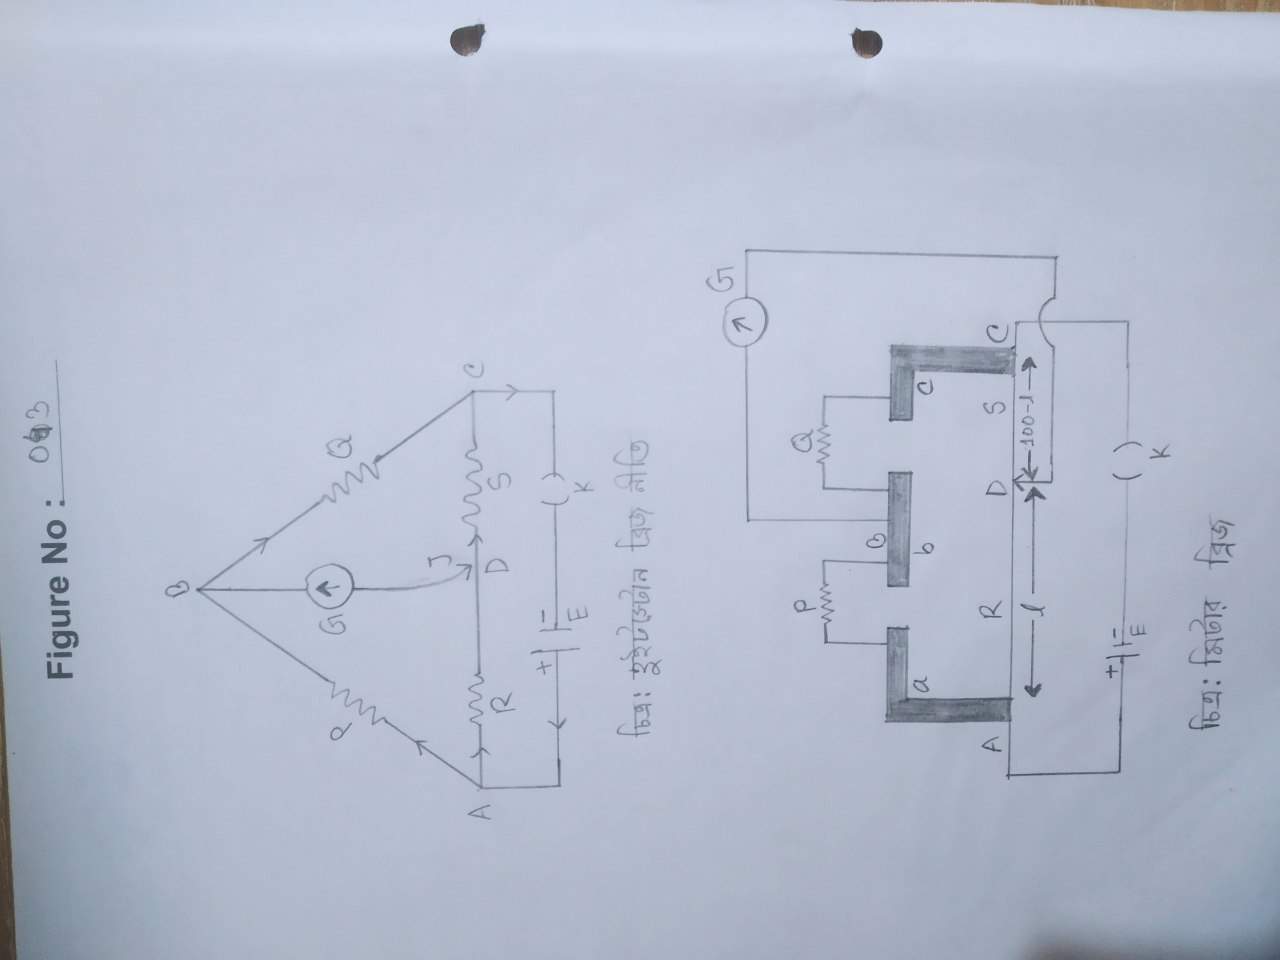 Figure No : 03
B
P
Q
G
J
A
R
D
S
C
+ -
E
( )
K
চিত্র: হুইটস্টোন ব্রিজ নীতি
G
P
Q
B
a
b
c
A
R
D
S
C
l
100-l
+ -
E
( )
K
চিত্র: মিটার ব্রিজ